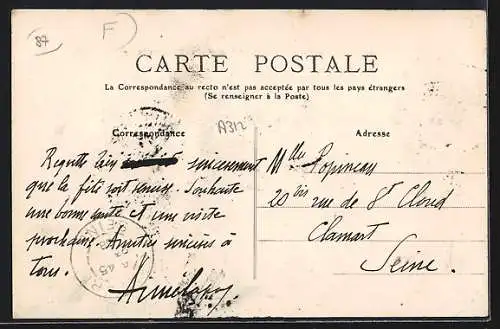 87
F
CARTE POSTALE
La Correspondance au recto n'est pas acceptée par tous les pays étrangers
(Se renseigner à la Poste)
A312
Correspondance
sincèrement
que la fête soit remise. Souhaite
une bonne santé et une visite
prochaine. Amitiés sincères à
tous.
Adresse
Mlle Popineau
20bis rue de St Cloud
Clamart
Seine.